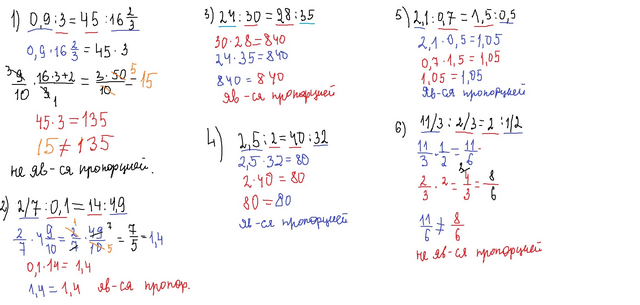 1) 0,9 : 3 = 45 : 16 2/3
0,9 · 16 2/3 = 45 · 3
3 9/10 · 16·3+2/3 1 = 3·50/10 5 = 15
45·3 = 135
15 ≠ 135
не яв-ся пропорцией.
2) 2/7 : 0,1 = 14 : 4,9
2/7 · 4 9/10 = 2/7 1 · 49/10 7 5 = 7/5 = 1,4
0,1·14 = 1,4
1,4 = 1,4 яв-ся пропор.
3) 24 : 30 = 28 : 35
30·28 = 840
24·35 = 840
840 = 840
яв-ся пропорцией
4) 2,5 : 2 = 40 : 32
2,5·32 = 80
2·40 = 80
80 = 80
яв-ся пропорцией
5) 2,1 : 0,7 = 1,5 : 0,5
2,1 · 0,5 = 1,05
0,7 · 1,5 = 1,05
1,05 = 1,05
яв-ся пропорцией
6) 11/3 : 2/3 = 2 : 1/2
11/3 · 1/2 = 11/6
2/3 · 2 = 4/3 = 8/6
11/6 ≠ 8/6
не яв-ся пропорцией